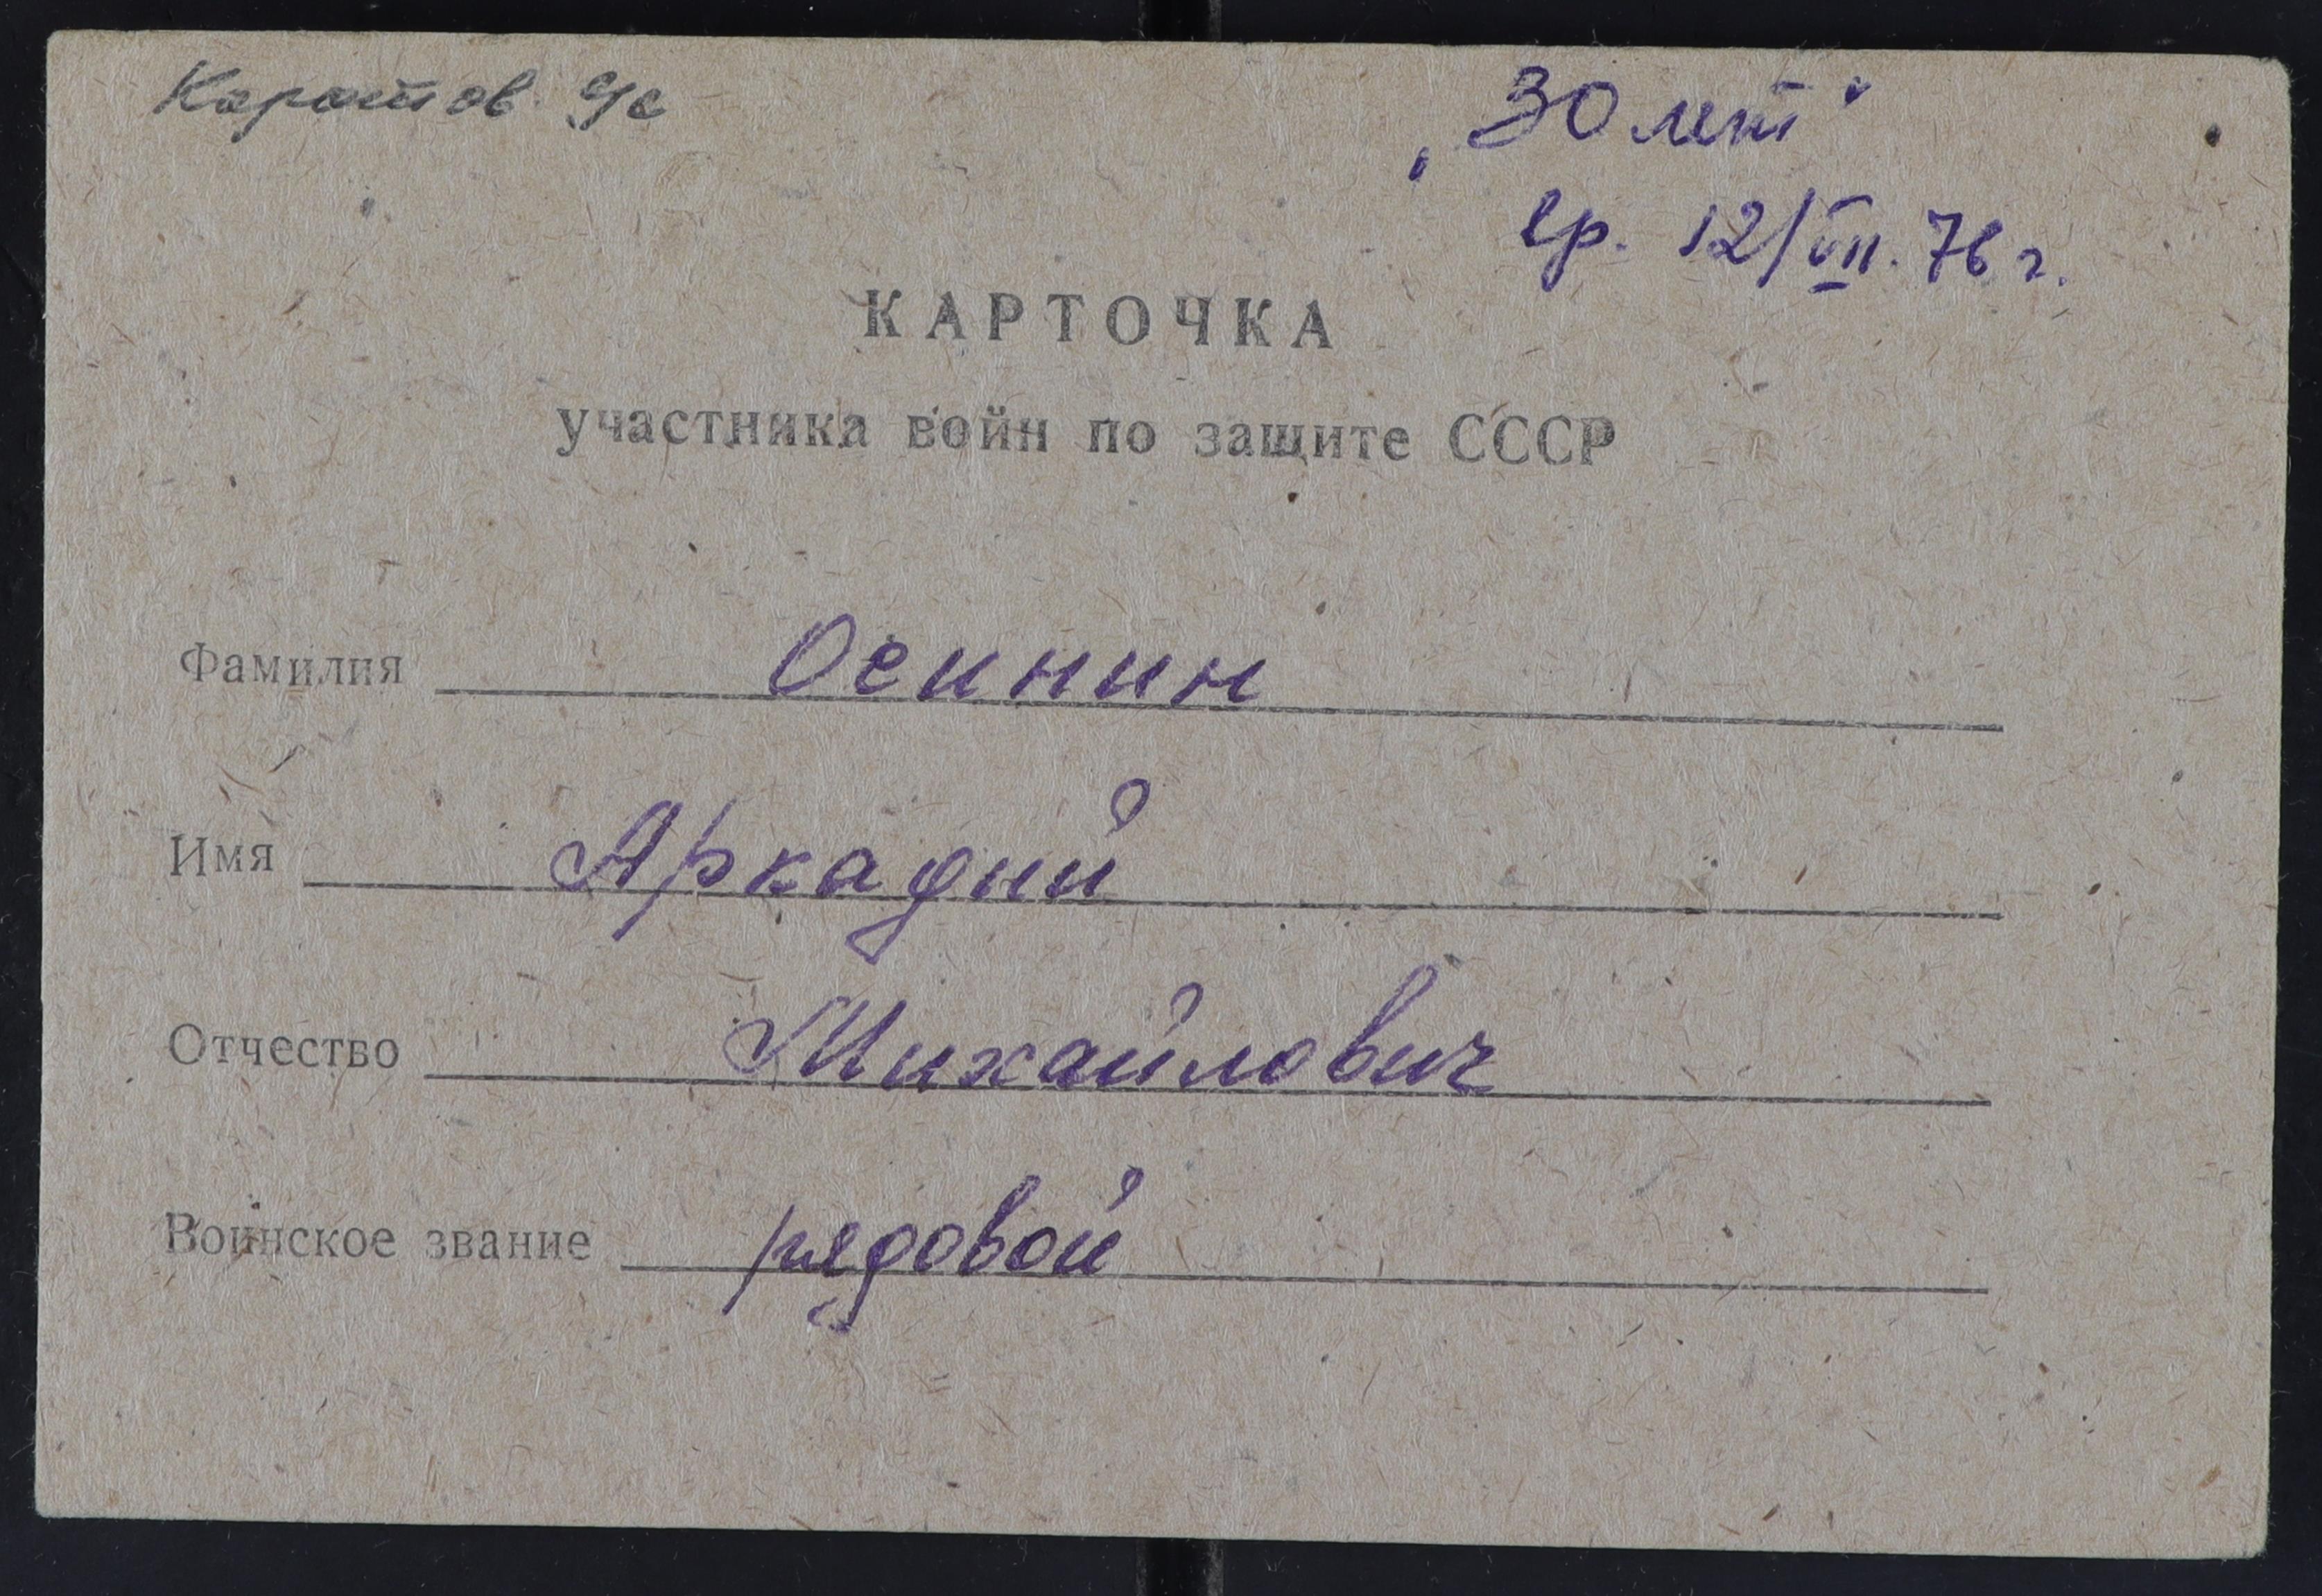 Каратов с/с
„30 лет“
вр. 12/VII. 76 г.
КАРТОЧКА
участника войн по защите СССР
Фамилия Осинин
Имя Аркадий
Отчество Михайлович
Воинское звание рядовой